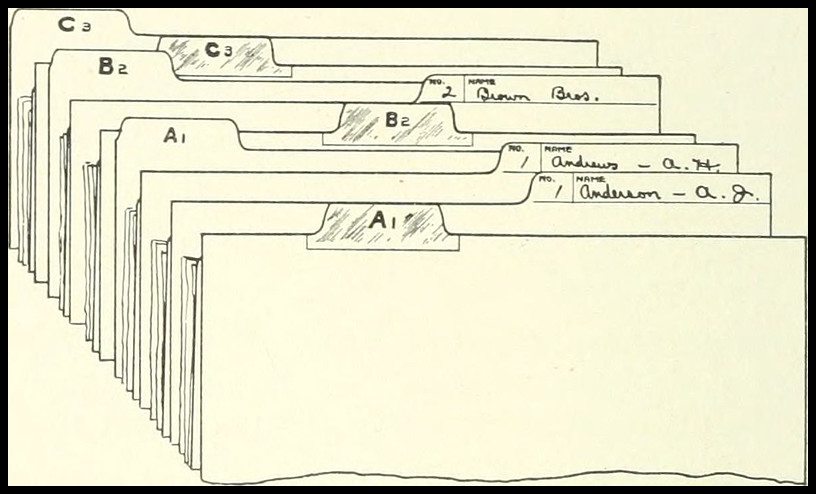 C 3
C 3
B 2
NO. NAME
2 Brown Bros.
B 2
A 1
NO. NAME
1 Andrews - A. H.
NO. NAME
1 Anderson - A. J.
A 1